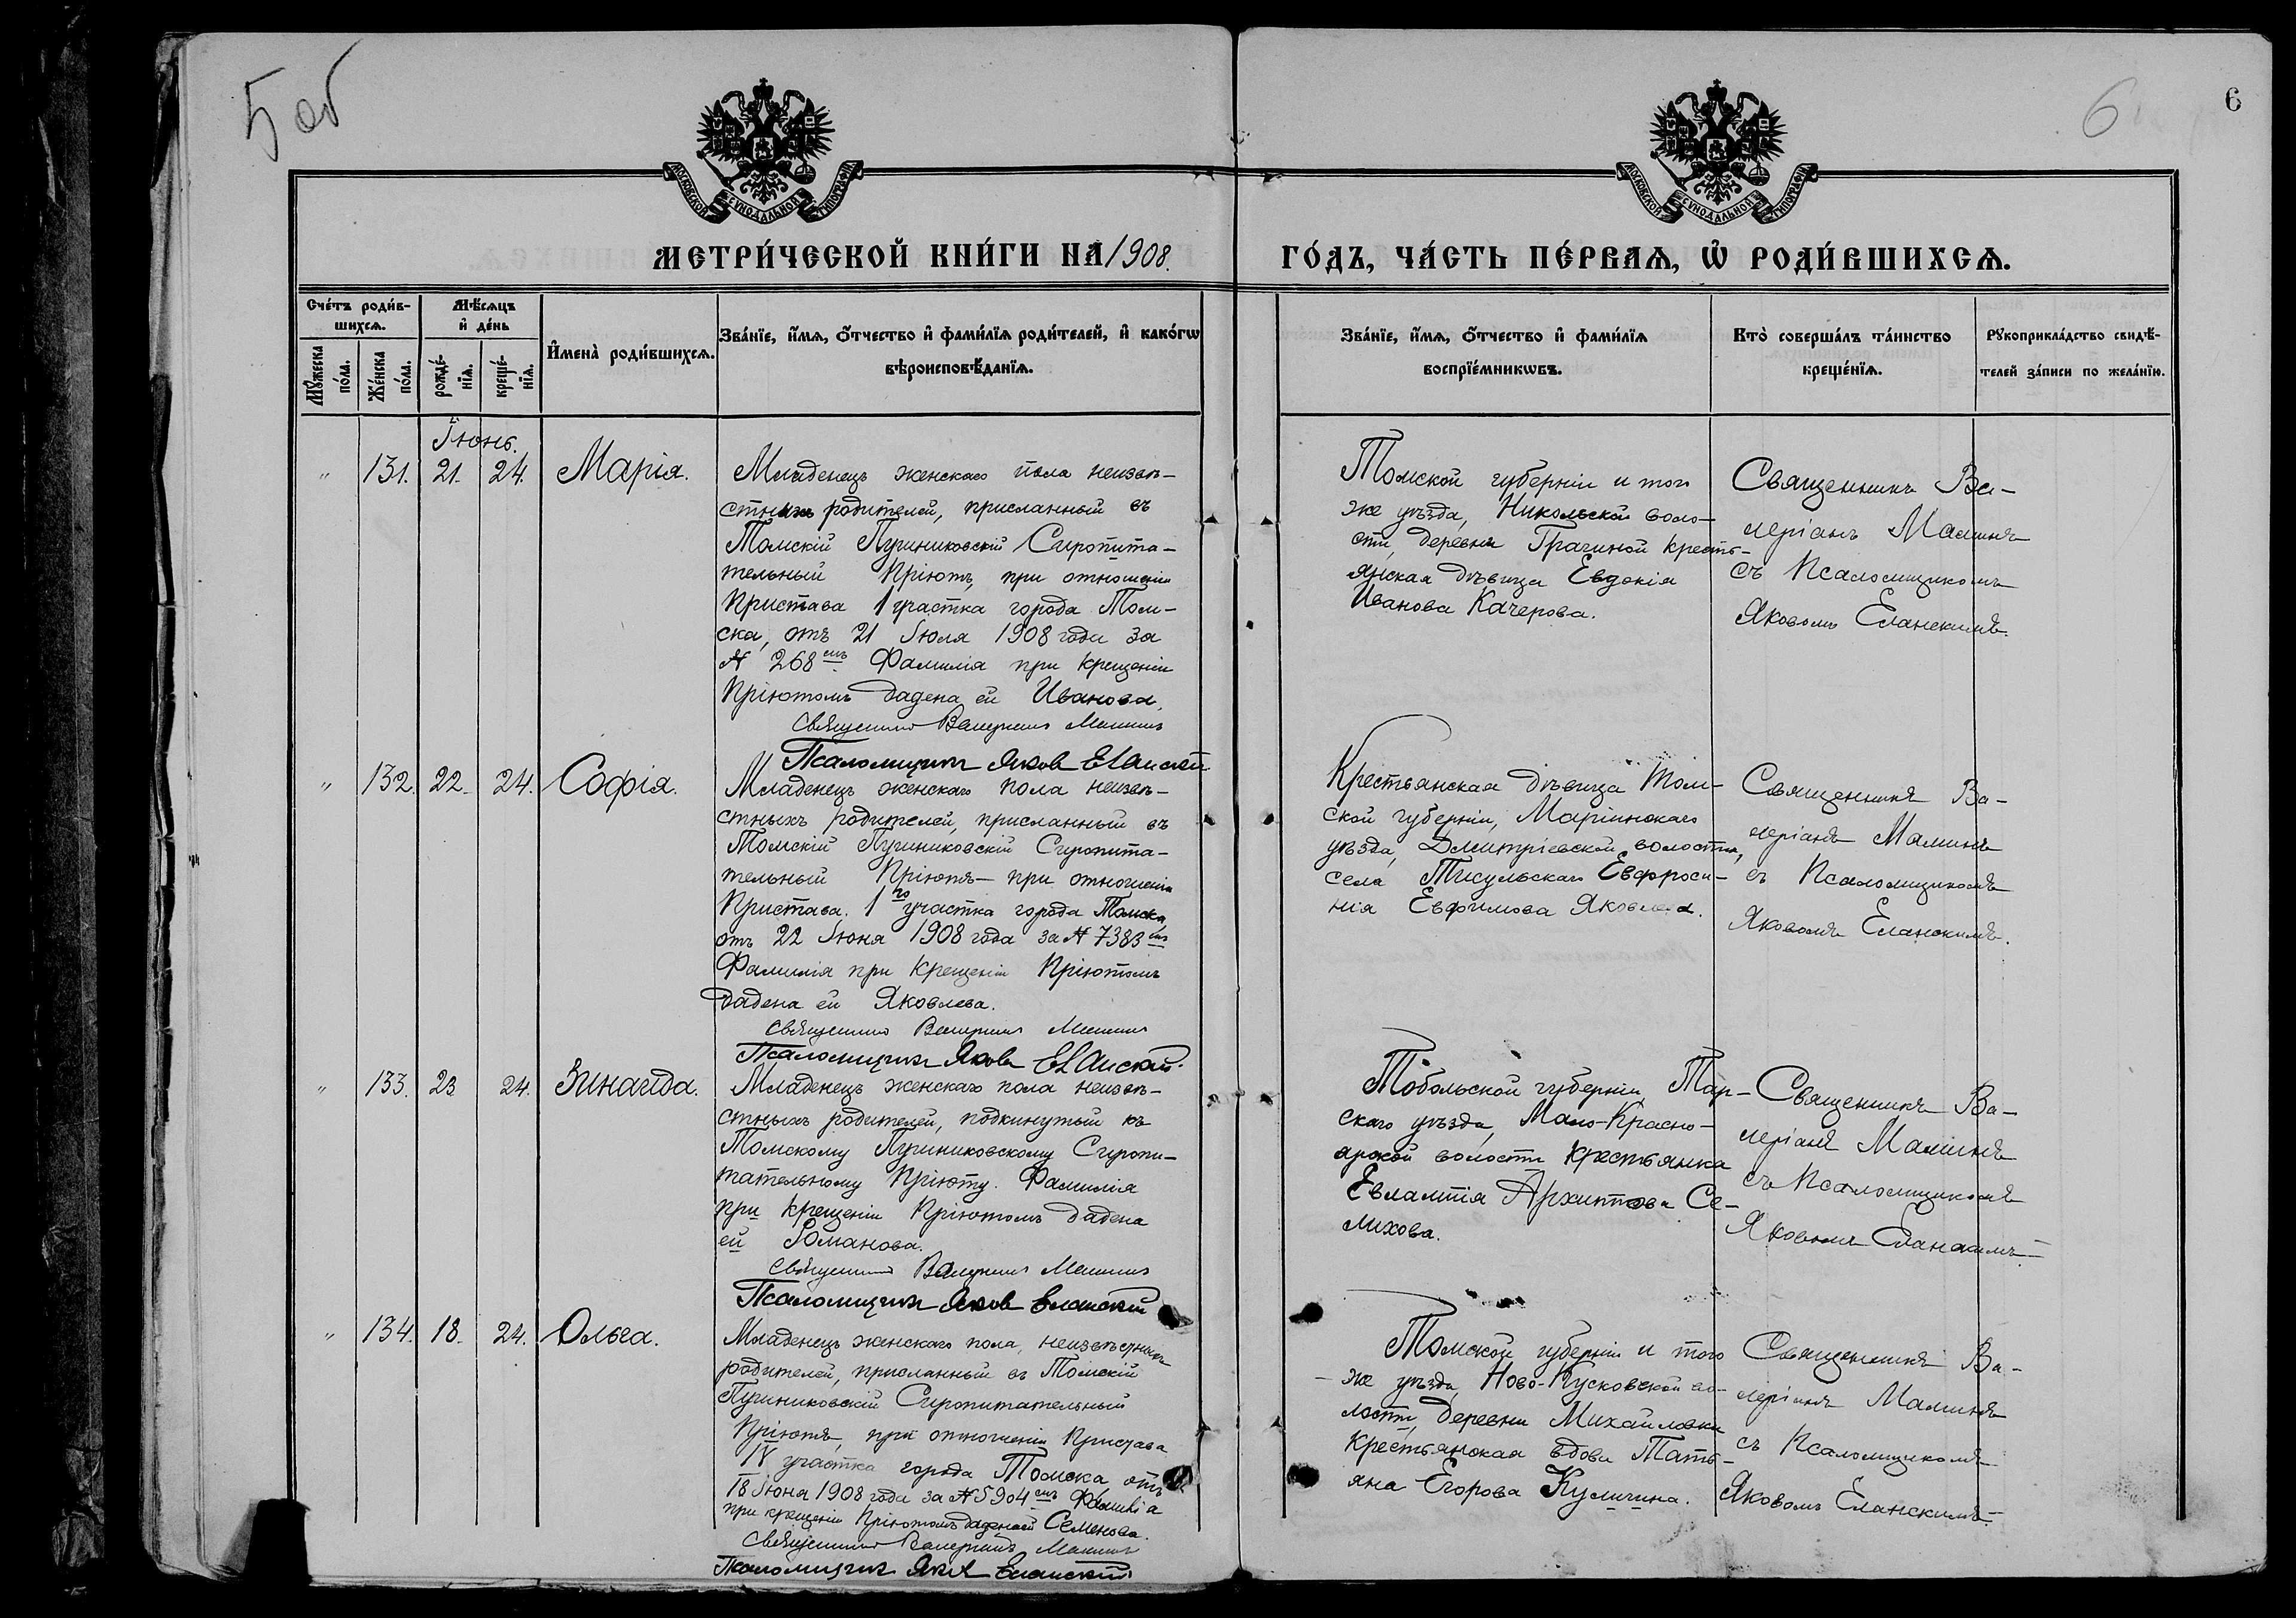 5 об
6
6
МОСКОВСКОЙ СѴНОДАЛЬНОЙ ТИПОГРАФІИ
МОСКОВСКОЙ СѴНОДАЛЬНОЙ ТИПОГРАФІИ
МЕТРИ́ЧЕСКОЙ КНИ́ГИ НА 1908.
ГО́ДЪ, ЧА́СТЬ ПЕ́РВАѦ, Ѡ҆ РОДИ́ВШИХСѦ.
Сче́тъ роди́в-
шихсѧ.
Мѣ́сяцъ
и҆ де́нь
Мꙋ́жеска
по́ла.
Же́нска
по́ла.
рожде́-
нїѧ.
креще́-
нїѧ.
И҆мена̀ роди́вшихсѧ.
Зва́нїе, и҆́мѧ, ѻ҆́тчество и҆ фами́лїѧ роди́телей, и҆ како́гѡ
вѣроисповѣ́данїѧ.
Зва́нїе, и҆́мѧ, ѻ҆́тчество и҆ фами́лїѧ
воспрїе́мникѡвъ.
Кто̀ соверша́лъ та́инство
креще́нїѧ.
Рꙋкоприкла́дство свидѣ́-
телей за́писи по жела́нїю.
Іюнь.
" 131. 21. 24. Марія.
Младенецъ женскаго пола неизвѣ-
стныхъ родителей, присланный въ
Томскій Пушниковскій Сиропита-
тельный Пріютъ, при отношеніи
Пристава 1 участка города Том-
ска, отъ 21 Іюля 1908 года за
№ 268 емъ Фамилія при крещеніи
Пріютомъ дадена ей Иванова.
Священникъ Валеріанъ Маминъ
Псаломщикъ Яков Еланскій
Томской губерніи и того
же уѣзда, Никольской воло-
сти, деревни Грачиной кресть-
янская дѣвица Евдокія
Иванова Качерова.
Священникъ Ва-
леріанъ Маминъ
съ Псаломщикомъ
Яковомъ Еланскимъ.
" 132. 22. 24. Софія.
Младенецъ женскаго пола неизвѣ-
стныхъ родителей, присланный въ
Томскій Пушниковскій Сиропита-
тельный Пріютъ — при отношеніи
Пристава. 1го участка города Томска
отъ 22 Іюня 1908 года за № 7383 мъ
Фамилія при крещеніи Пріютомъ
дадена ей Яковлева.
Священникъ Валеріанъ Маминъ
Псаломщикъ Яковъ Еланскій.
Крестьянская дѣвица Том-
ской губерніи, Маріинскаго
уѣзда, Дмитріевской волости,
села Тисульскаго Евфроси-
нія Евфимова Яковлева.
Священникъ Ва-
леріанъ Маминъ
съ Псаломщикомъ
Яковомъ Еланскимъ.
" 133. 23 24. Зинаида.
Младенецъ женскаго пола неизвѣ-
стныхъ родителей, подкинутый къ
Томскому Пушниковскому Сиропи-
тательному Пріюту. Фамилія
при крещеніи Пріютомъ дадена
ей Романова.
Священникъ Валеріанъ Маминъ
Псаломщикъ Яковъ Еланскій
Тобольской губерніи, Тар-
скаго уѣзда, Мало-Красно-
ярской волости крестьянка
Евлампія Архипова Се-
лихова.
Священникъ Ва-
леріанъ Маминъ
съ Псаломщикомъ
Яковомъ Еланскимъ.
" 134. 18. 24. Ольга.
Младенецъ женскаго пола, неизвѣстныхъ
родителей, присланный въ Томскій
Пушниковскій Сиропитательный
Пріютъ, при отношеніи Пристава
IV участка города Томска, отъ
18 Іюня 1908 года за № 5904 емъ Фамилія
при крещеніи Пріютомъ дадена ей Семенова.
Священникъ Валеріанъ Маминъ
Псаломщикъ Яков Еланскій
Томской губерніи и того
же уѣзда, Ново-Кусковской во-
лости, деревни Михайловки
крестьянская вдова Тать-
яна Егорова Куличина.
Священникъ Ва-
леріанъ Маминъ
съ Псаломщикомъ
Яковомъ Еланскимъ.